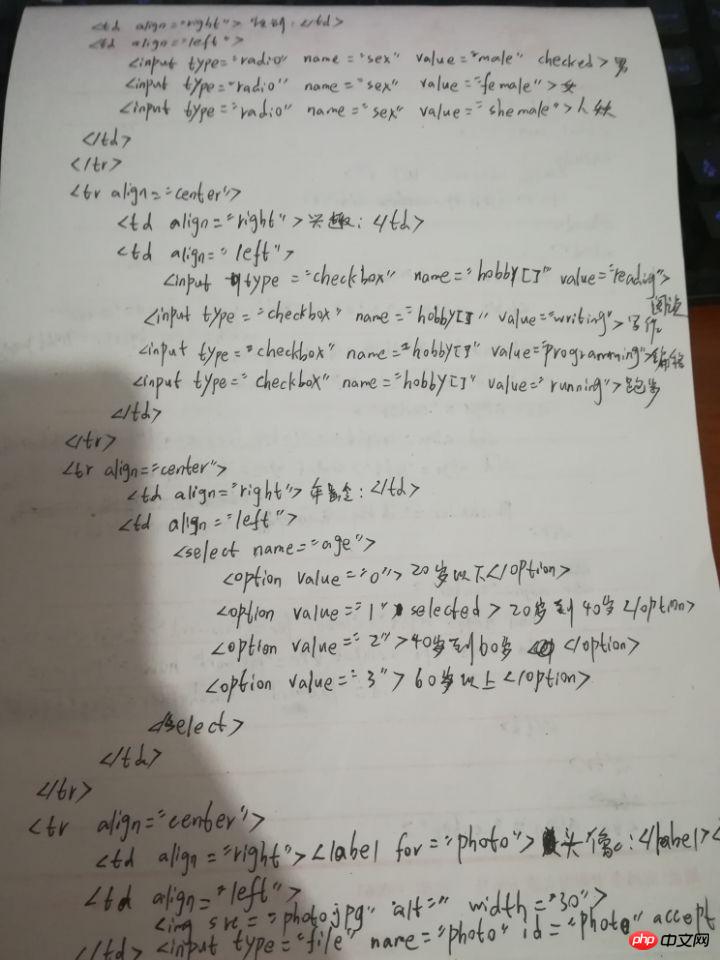 <td align="right"> 性别:</td>
<td align="left">
<input type="radio" name="sex" value="male" checked> 男
<input type="radio" name="sex" value="female"> 女
<input type="radio" name="sex" value="shemale"> 人妖
</td>
</tr>
<tr align="center">
<td align="right"> 兴趣: </td>
<td align="left">
<input type="checkbox" name="hobby[]" value="readig"> 阅读
<input type="checkbox" name="hobby[]" value="writing"> 写作
<input type="checkbox" name="hobby[]" value="programming"> 编程
<input type="checkbox" name="hobby[]" value="running"> 跑步
</td>
</tr>
<tr align="center">
<td align="right"> 年龄:</td>
<td align="left">
<select name="age">
<option value="0"> 20岁以下</option>
<option value="1" selected> 20岁到40岁</option>
<option value="2">40岁到60岁 </option>
<option value="3"> 60岁以上</option>
</select>
</td>
</tr>
<tr align="center">
<td align="right"><label for="photo"> 头像:</label><
<td align="left">
<img src="photo.jpg" alt="" width="30">
</td> <input type="file" name="photo" id="photo" accept
php中文网